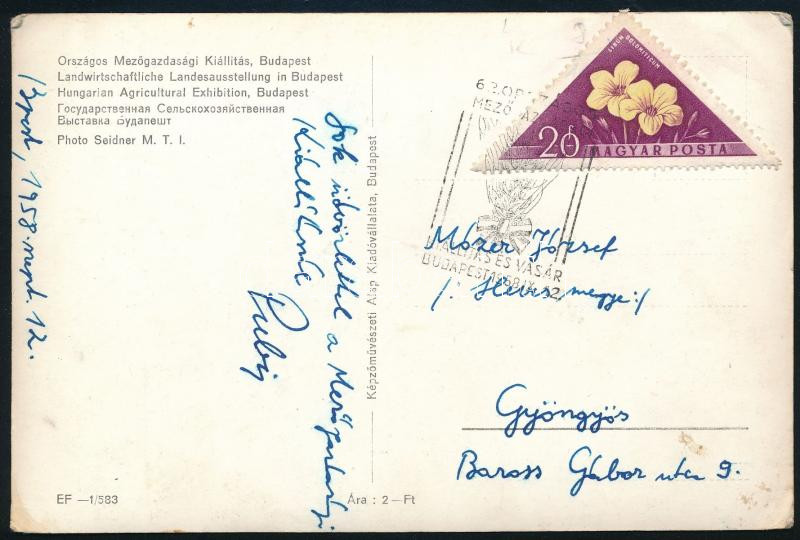 Országos Mezőgazdasági Kiállítás, Budapest
Landwirtschaftliche Landesausstellung in Budapest
Hungarian Agricultural Exhibition, Budapest
Государственная Сельскохозяйственная
Выставка Будапешт
Photo Seidner M. T. I.
Bpest, 1958. szept. 12.
Sok üdvözlettel a Mezőgazdasági
Kiállításról
Rubin
Képzőművészeti Alap Kiadóvállalata, Budapest
EF —1/583
Ára : 2 — Ft
LINUM DOLOMITICUM
20 f
MAGYAR POSTA
ÉS VÁSÁR
BUDAPEST 1958. IX. 12
Mózer József
/: Heves megye :/
Gyöngyös
Baross Gábor utca 9.